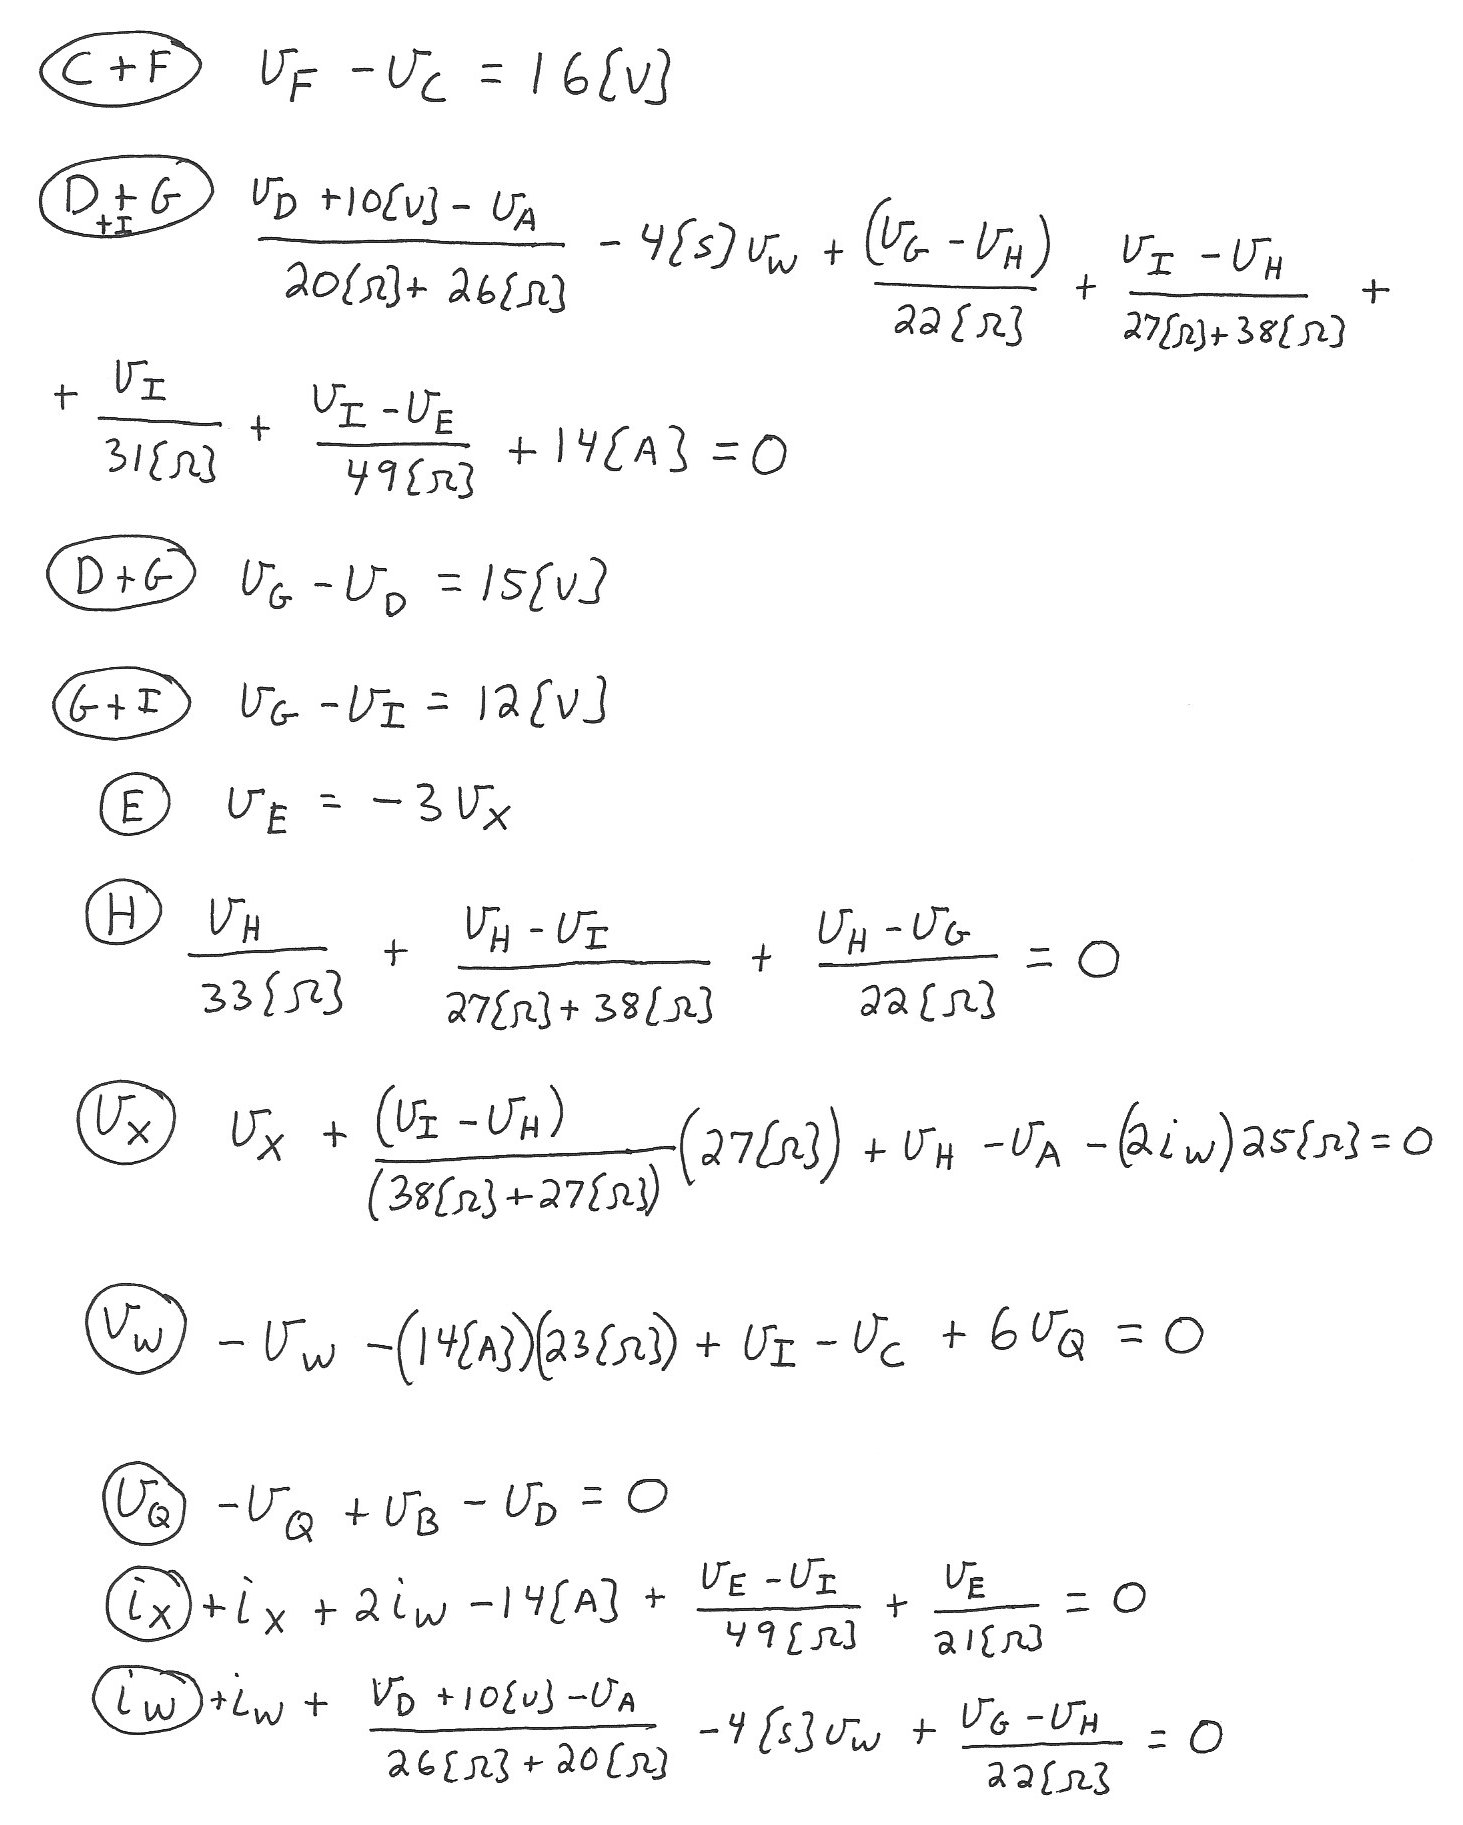 C+F v_F - v_C = 16{V}
D+G+I (v_D + 10{V} - v_A)/(20{Ω} + 26{Ω}) - 4{S}v_W + (v_G - v_H)/22{Ω} + (v_I - v_H)/(27{Ω} + 38{Ω}) +
+ v_I/31{Ω} + (v_I - v_E)/49{Ω} + 14{A} = 0
D+G v_G - v_D = 15{V}
G+I v_G - v_I = 12{V}
E v_E = -3v_X
H v_H/33{Ω} + (v_H - v_I)/(27{Ω} + 38{Ω}) + (v_H - v_G)/22{Ω} = 0
v_X v_X + (v_I - v_H)/(38{Ω} + 27{Ω}) (27{Ω}) + v_H - v_A - (2i_W)25{Ω} = 0
v_W - v_W - (14{A})(23{Ω}) + v_I - v_C + 6v_Q = 0
v_Q - v_Q + v_B - v_D = 0
i_X + i_X + 2i_W - 14{A} + (v_E - v_I)/49{Ω} + v_E/21{Ω} = 0
i_W + i_W + (v_D + 10{V} - v_A)/(26{Ω} + 20{Ω}) - 4{S}v_W + (v_G - v_H)/22{Ω} = 0